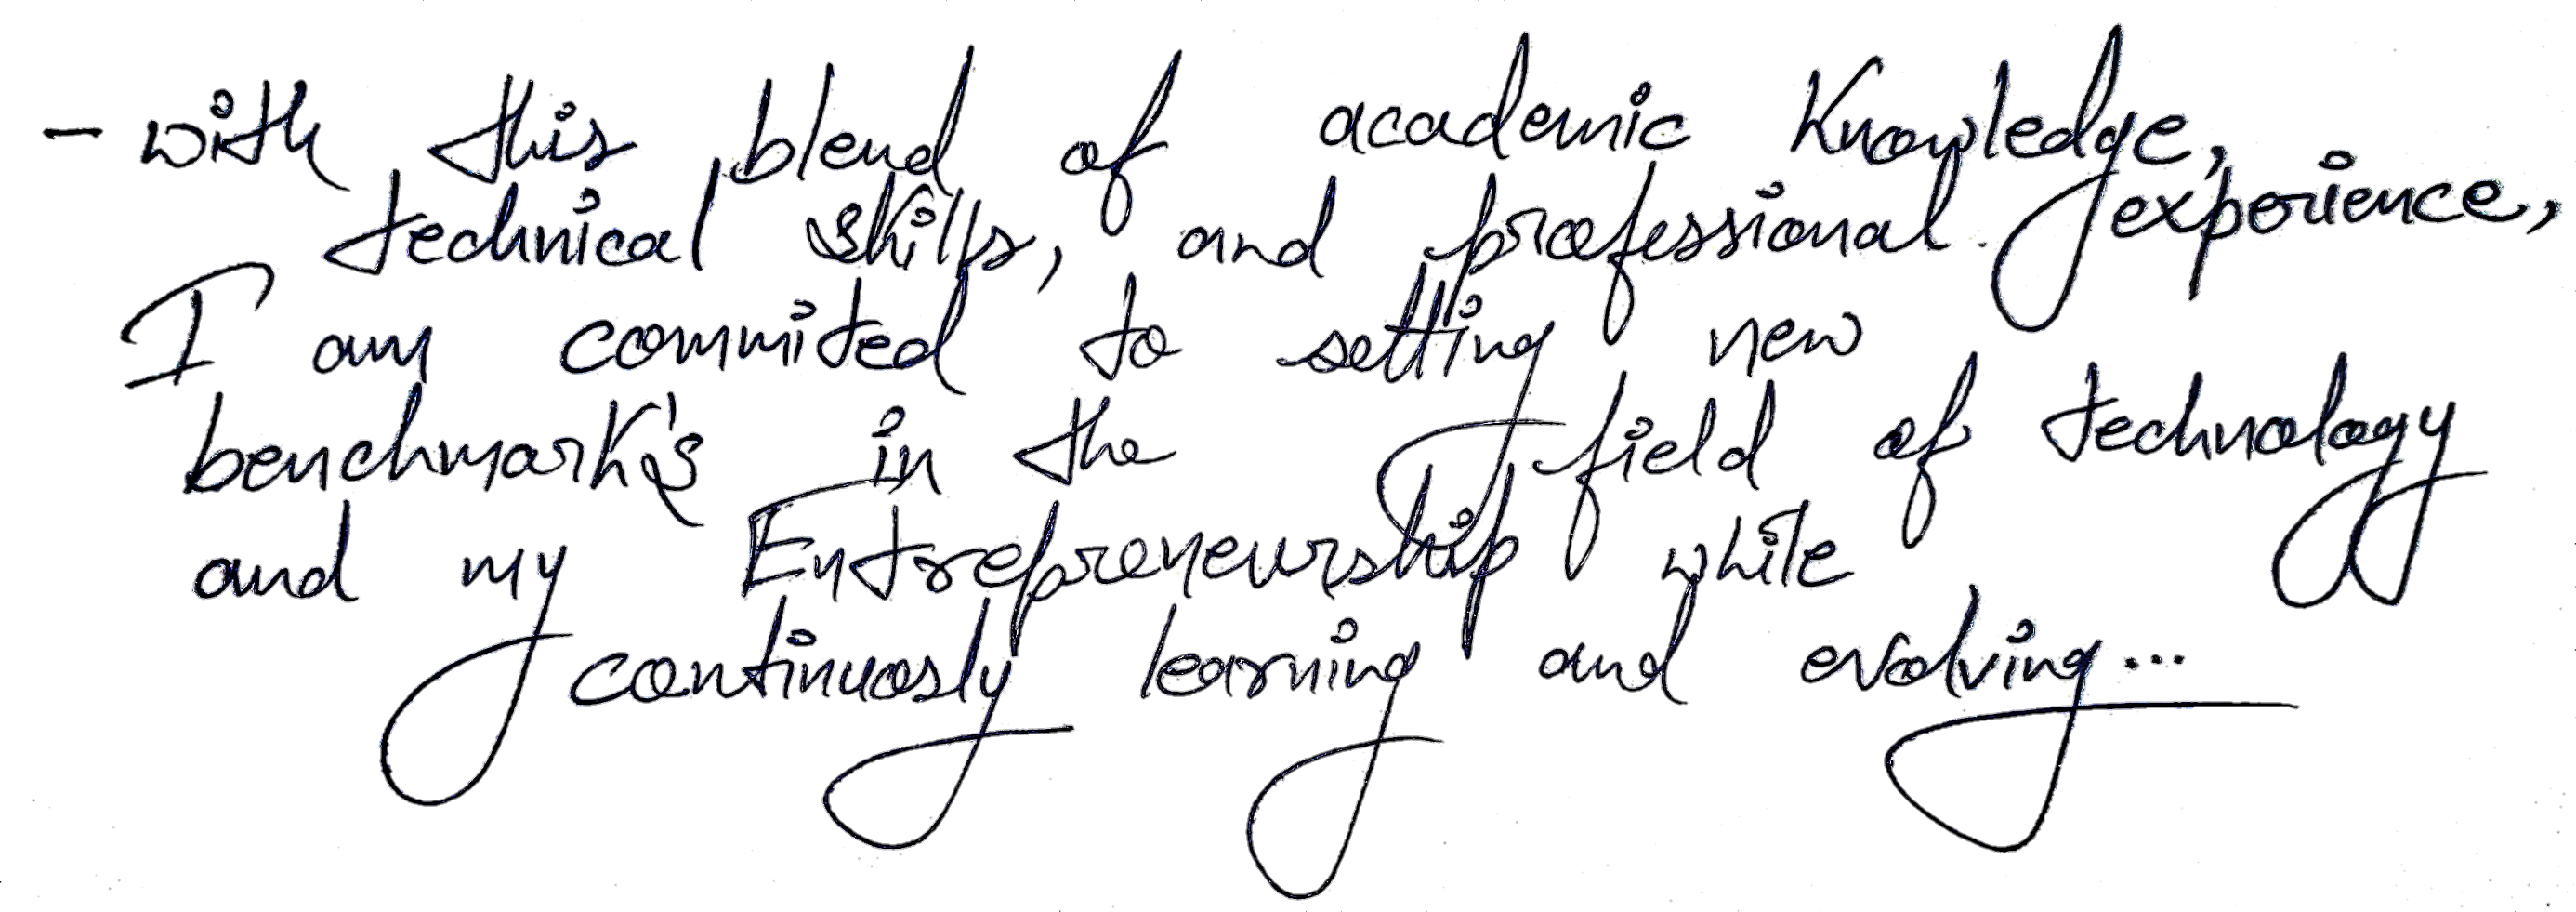 - with this blend of academic Knowledge,
technical skills, and professional experience,
I am commited to setting new
benchmark's in the field of technology
and my Entrepreneurship while
continuosly learning and evolving...